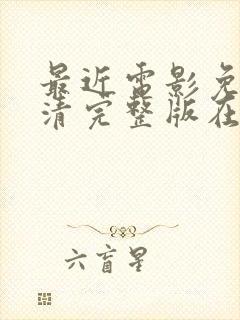 最近电影免
清完整版在
六盲星